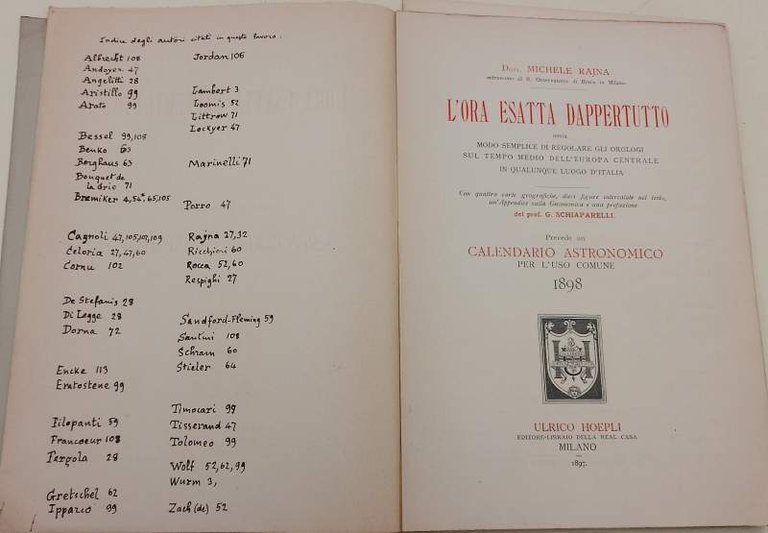 Indice degli autori citati in questo lavoro:
Albrecht 108
Andoyer 47
Angelitti 28
Aristillo 99
Arato 99
Bessel 99,108
Benko 63
Berghaus 63
Bouquet de
la Grie 71
Bremiker 4,54,65,105
Cagnoli 47,105,107,109
Celoria 27,47,60
Cornu 102
De Stefanis 28
Di Legge 28
Dorna 72
Encke 113
Eratostene 99
Filopanti 59
Francoeur 108
Pergola 28
Gretschel 62
Ipparco 99
Jordan 106
Lambert 3
Loomis 52
Littrow 71
Lockyer 47
Marinelli 71
Porro 47
Rajna 27,32
Ricchieri 60
Rocca 52,60
Respighi 27
Sandford-Fleming 59
Santini 108
Schram 60
Stieler 64
Timocari 99
Tisserand 47
Tolomeo 99
Wolf 52,62,99
Wurm 3,
Zach (de) 52
Dott. MICHELE RAJNA
astronomo di R. Osservatorio di Brera in Milano
L'ORA ESATTA DAPPERTUTTO
OSSIA
MODO SEMPLICE DI REGOLARE GLI OROLOGI
SUL TEMPO MEDIO DELL'EUROPA CENTRALE
IN QUALUNQUE LUOGO D'ITALIA
Con quattro carte geografiche, dieci figure intercalate nel testo,
un'Appendice sulla Gnomonica e una prefazione
del prof. G. SCHIAPARELLI.
Precede un
CALENDARIO ASTRONOMICO
PER L'USO COMUNE
1898
ULRICO HOEPLI
EDITORE-LIBRAIO DELLA REAL CASA
MILANO
1897.